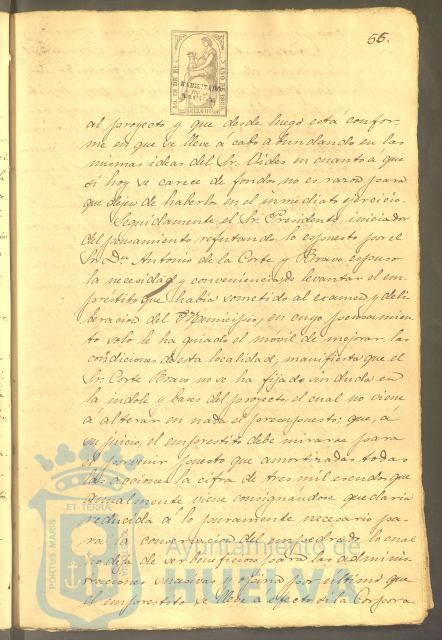 55.
HABILITADO
al proyecto y que desde luego esta confor-
me en que se lleve á cabo abundando en las
mismas ideas del Sr. Vides en cuanto a que
si hoy se carece de fondos no es razon para
que dejen de haberlos en el inmediato ejercicio.
Seguidamente el Sr. Presidente, iniciador
del pensamiento refutando lo espuesto por el
Sr. Dn. Antonio de la Corte y Bravo, espuso
la necesidad y conveniencia de levantar el em-
préstito que habia sometido al examen y deli-
beracion del Municipio, en cuyo pensamien-
to solo le ha guiado el móvil de mejorar las
condiciones de esta localidad, manifiesta que el
Sr. Corte Bravo no se ha fijado sin duda en
la indole y bases del proyecto, el cual no viene
á alterar en nada el presupuesto; que, á
su juicio, el emprestito debe mirarse para
el porvenir puesto que amortizadas todas
las acciones la cifra de tres mil escudos que
anualmente viene consignandose quedaria
reducida á lo puramente necesario pa-
ra la conservacion del empedrado lo cual
no deja de ser beneficioso para las adminis-
traciones sucesivas y opina por ultimo que
el emprestito se lleve a efecto si la Corpora-
PORTUS MARIS ET TERRAE
Ayuntamiento de
HUELVA